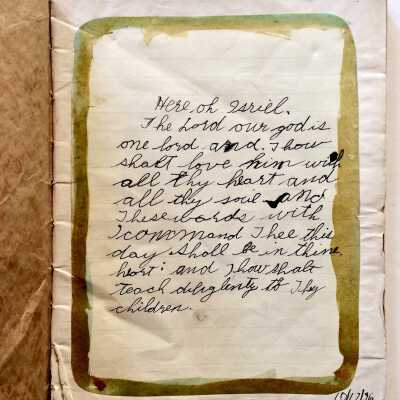 Here, oh Isriel.
The Lord our god is
one lord and. Thow
shalt love him with
all thy heart and
all thy soul and
These words with
I command Thee this
day shall be in thine
heart: and Thow shalt
teach diligently to Thy
children.